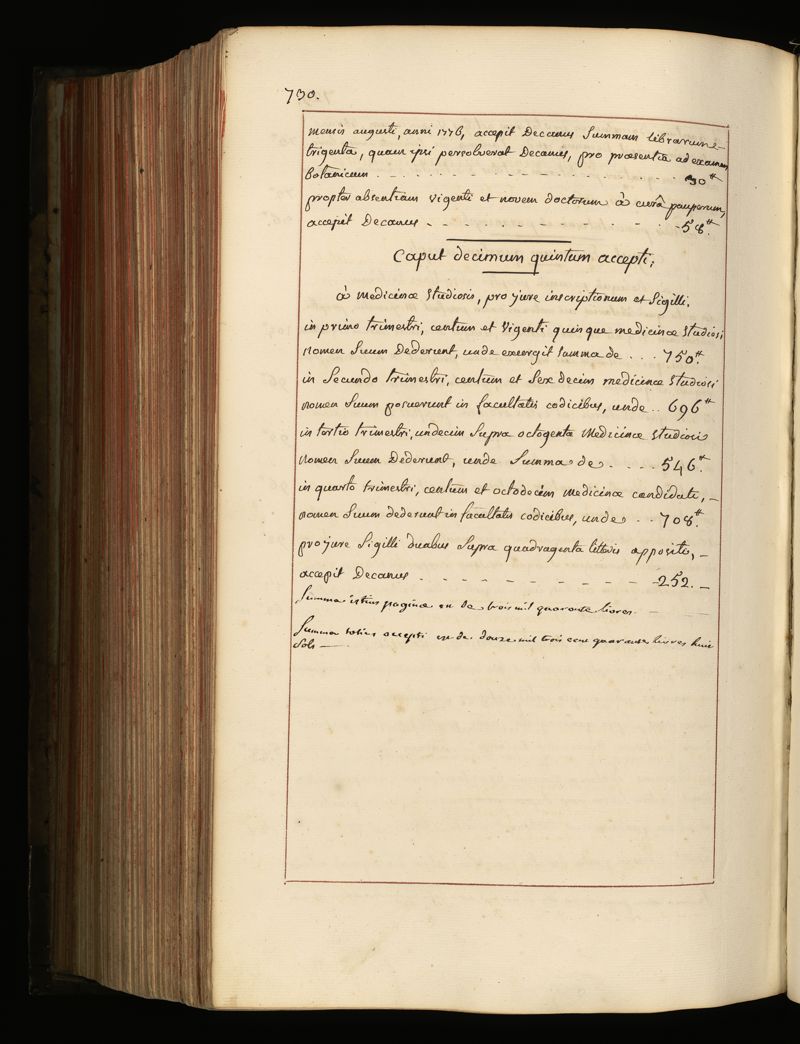 730.
mensis augusti, anni 1776, accepit Decanus Summam librarum
trigenta, quam ipsi persolverat Decanus, pro præsentia ad examen
botanicum . - - - - - - - - - - - - 30#
propter absentiam vigenti et novem doctorum à curâ pauperum,
accepit Decanus - - - - - - - - - - - 58#.
Caput decimum quintum accepti,
à Medicinæ Studiosis, pro jure inscriptionum et Sigilli.
in primo trimestri, centum et Vigenti quinque medicinæ Studiosi
nomen Suum Dederunt, unde exurgit summa de . . . 750#
in Secundo trimestri, centum et Sex decim medicinæ Studiosi
nomen Suum posuerunt in facultatis codicibus, unde . . 696#
in tertio trimestri, undecim Supra octogenta Medicinæ Studiosi
nomen Suum Dederunt, unde Summa de . . . . 546#.
in quarto trimestri, centum et octodecim Medicinæ candidati, _
nomen Suum dederunt in facultatis codicibus, unde . . 708#.
pro jure Sigilli duabus Supra quadragenta litteris appositi, _
accepit Decanus . - - - - - - - - - 252. _
Summa istius paginæ est de trois mil quarante livres
Summa totius accepti est de douze mil trois cent quarante livres huit
Sols